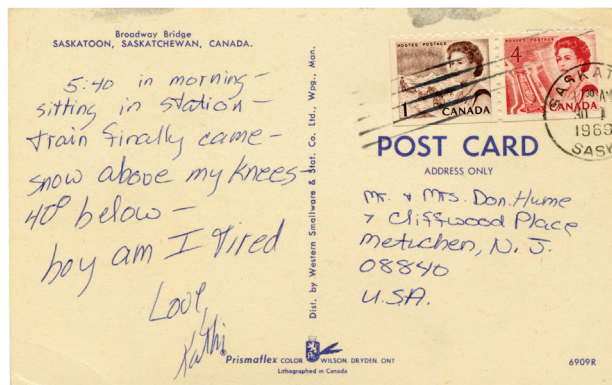 Broadway Bridge
SASKATOON, SASKATCHEWAN, CANADA.
5:40 in morning -
sitting in station -
train finally came -
snow above my knees -
40° below -
boy am I tired
Love,
Kathi
Dist. by Western Smallware & Stat. Co. Ltd., Wpg., Man.
POSTES POSTAGE
1
CANADA
POSTES POSTAGE
4
CANADA
SASKAT
30 AM
1969
SASK
POST CARD
ADDRESS ONLY
Mr. & Mrs. Don. Hume
7 Cliffwood Place
Metuchen, N. J.
08840
U.S.A.
Prismaflex COLOR WILSON, DRYDEN, ONT
Lithographed in Canada
6909R